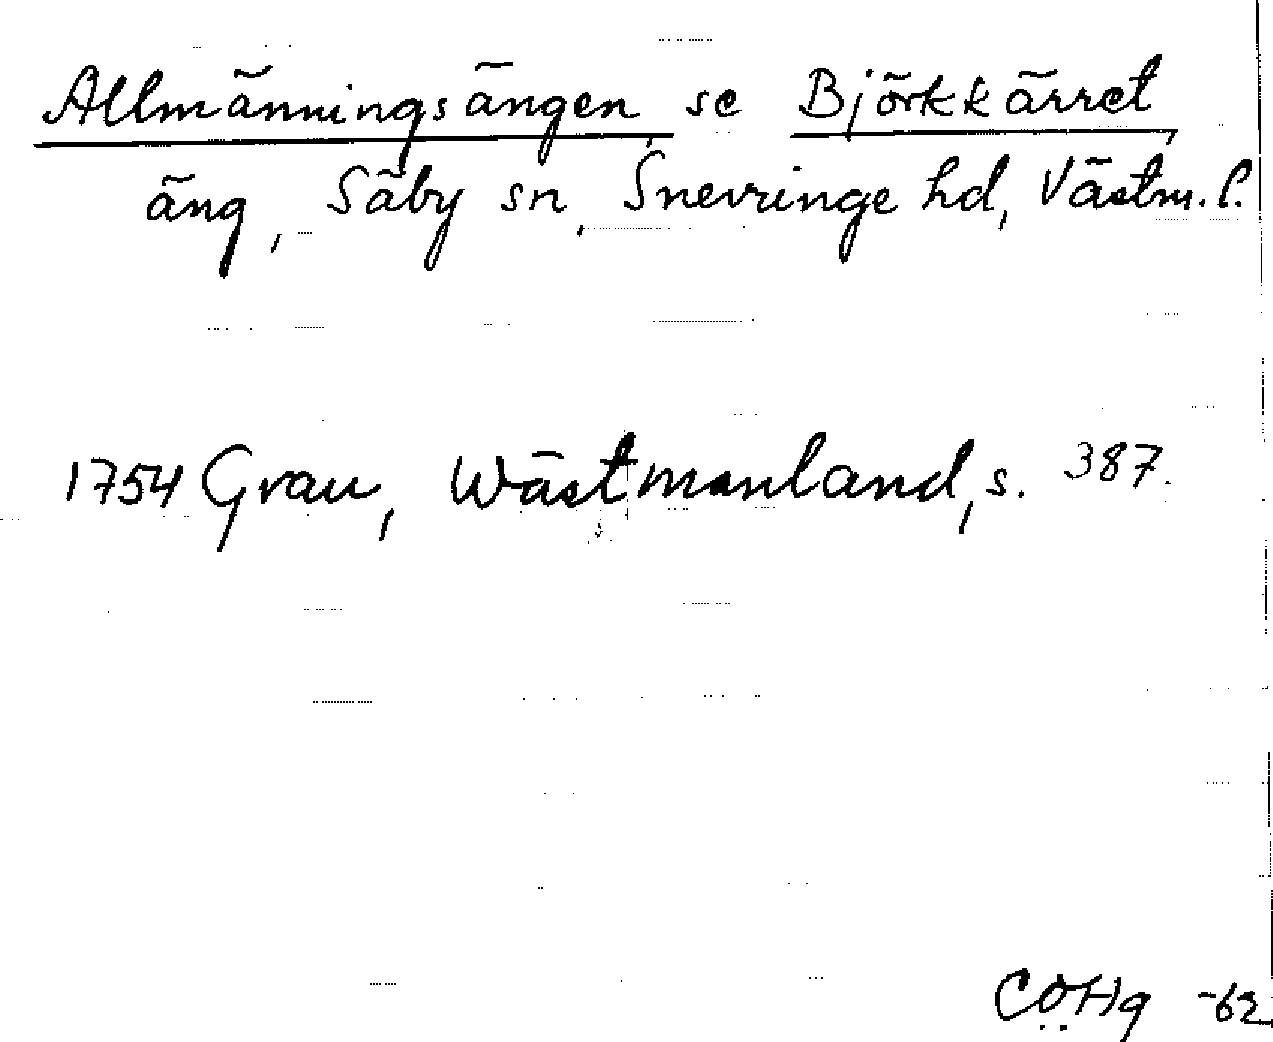 Allmänningsängen, se Björkkärret,
äng, Säby sn, Snevringe hd, Västm. l.
1754 Grau, Wästmanland, s. 387.
CÖHg -62